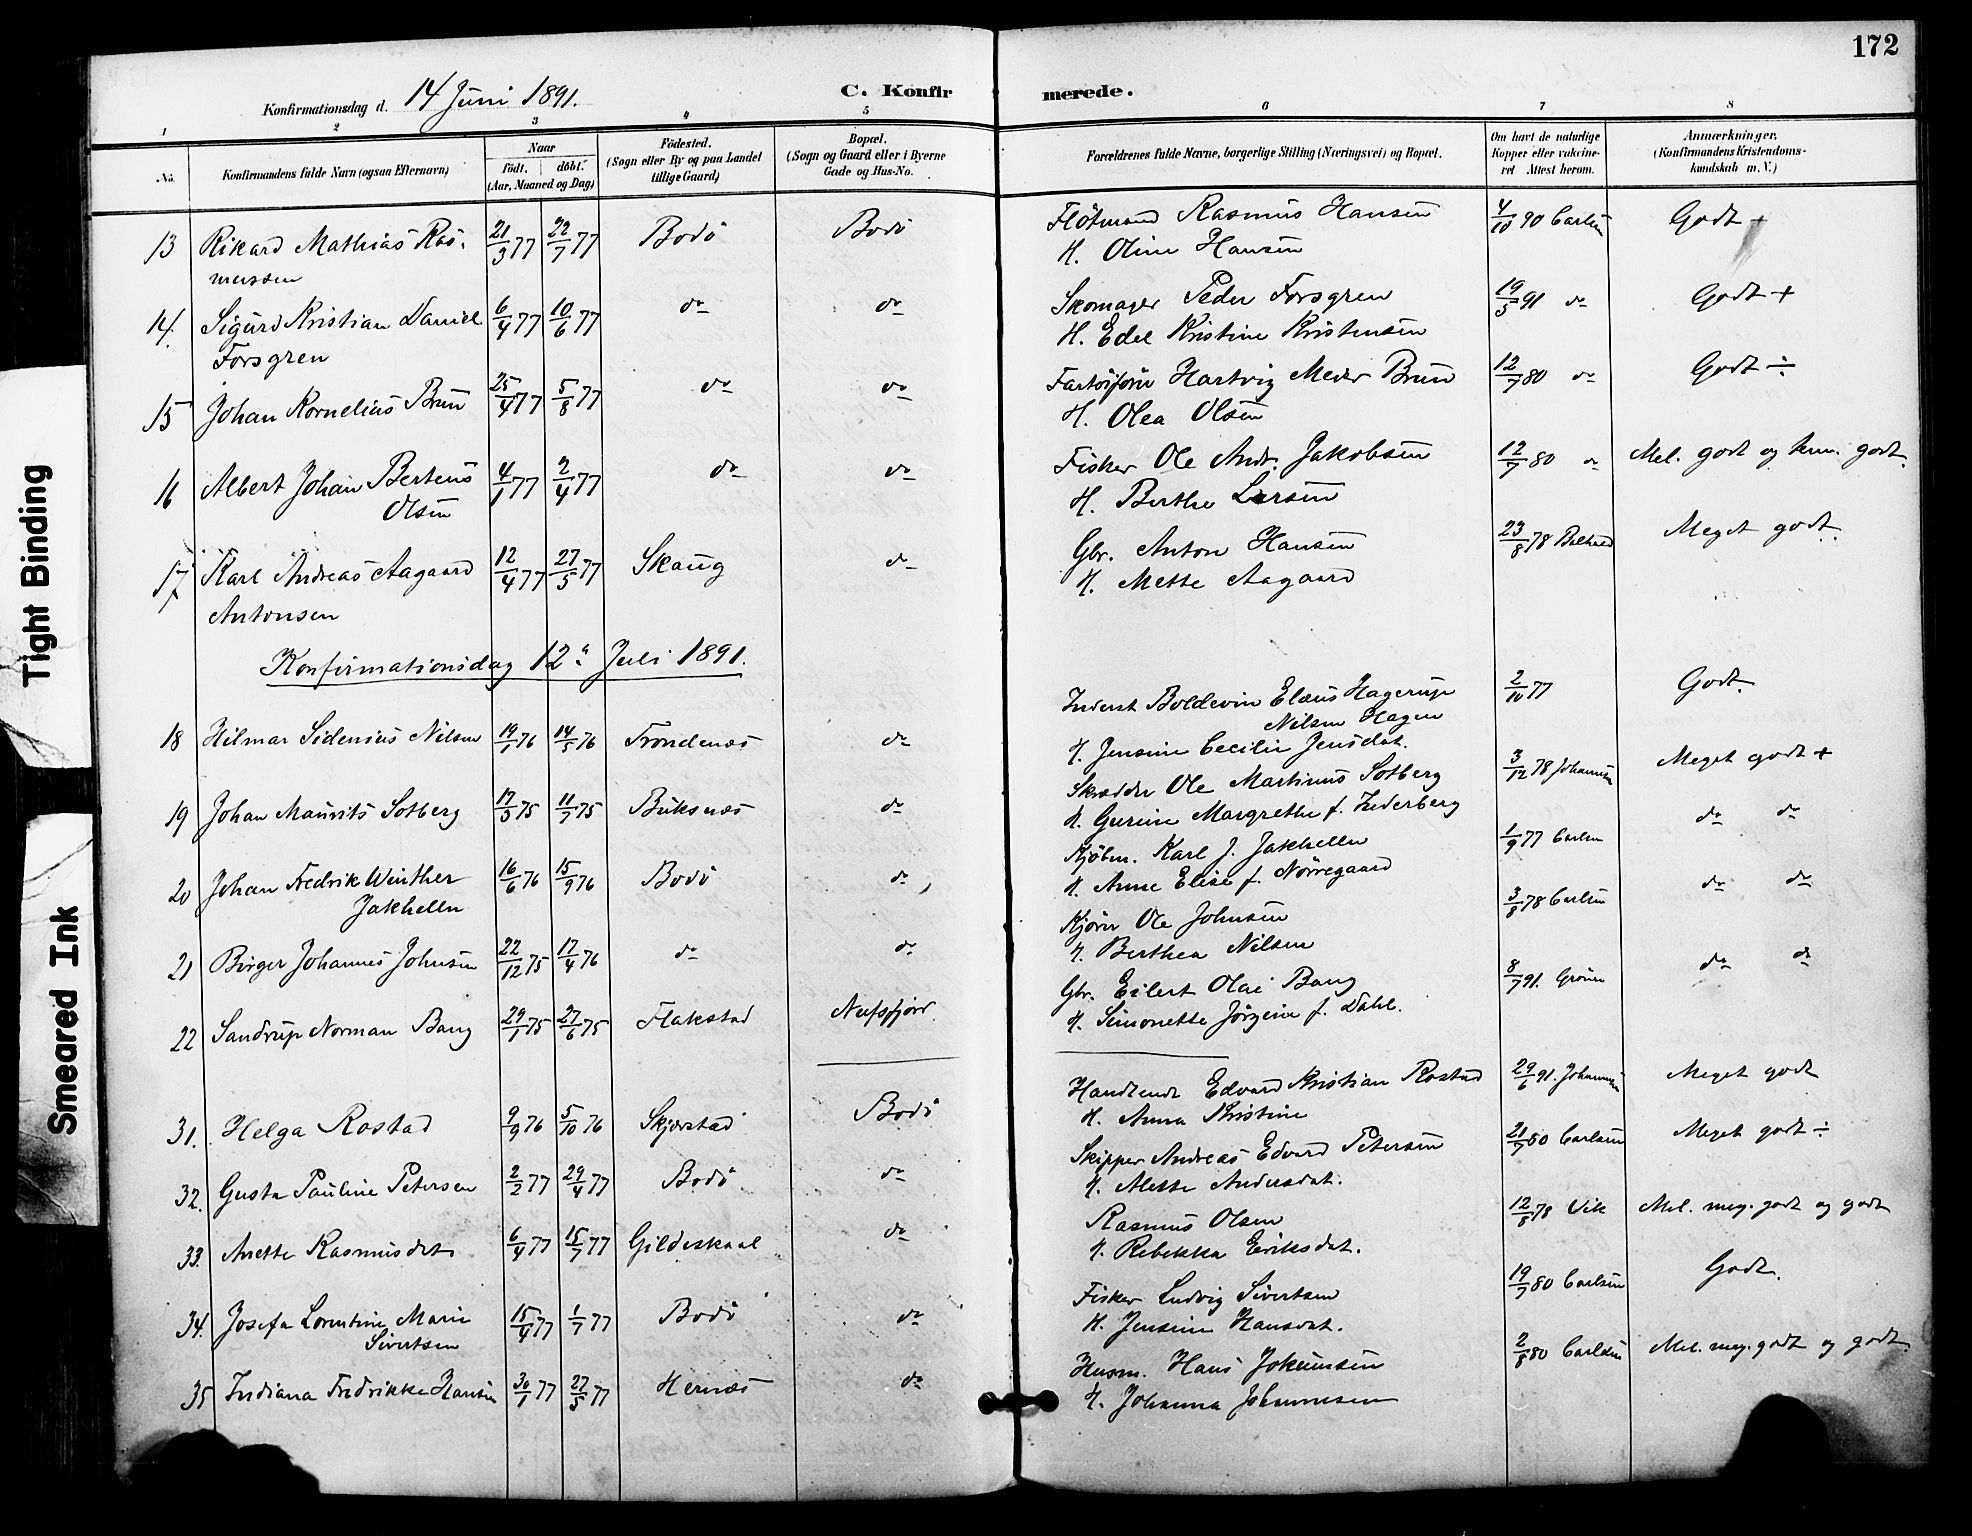 172
Konfirmationsdag d. 14 Juni 1891.
C. Konfirmerede.
1 2 3 4 5 6 7 8
No.
Konfirmandens fulde Navn (ogsaa Efternavn)
Naar
födt. döbt.
(Aar, Maaned og Dag)
Födested.
(Sogn eller By og paa Landet
tillige Gaard)
Bopæl.
(Sogn og Gaard eller i Byerne
Gade og Hus-No.
Forældrenes fulde Navne, borgerlige Stilling (Næringsvei) og Bopæl.
Om havt de naturlige
Kopper eller vakcine-
ret Attest herom.
Anmærkninger.
(Konfirmandens Kristendoms-
kundskab m. V.)
13 Rikard Mathias Ras- 21/3 77 22/7 77 Bodö Bodö Flötmand Rasmus Hansen 4/10 90 Carlsen Godt +
mussen H. Oline Hansen
14. Sigurd Kristian Daniel 6/4 77 10/6 77 do do Skomager Peder Forsgren 19/5 91 do Godt +
Forsgren H. Edel Kristine Kristensen
15 Johan Kornelius Brun 25/4 77 5/8 77 do do Fartöiförer Hartvig Meder Brun 12/7 80 do Godt ÷
H. Olea Olsen
16 Albert Johan Bertens 4/1 77 2/4 77 do do Fisker Ole Andr. Jakobsen 12/7 80 do Mel. godt og tem. godt.
Olsen H. Berthe Larsen
17 Karl Andreas Aagaard 12/4 77 27/5 77 Skaug do Gbr. Anton Hansen 23/8 78 Meget godt.
Antonsen H. Mette Aagaard
Konfirmationsdag 12te Juli 1891.
18 Hilmar Sidenius Nilsen 19/1 76 14/5 76 Trondenæs do Inderst Boldevin Elæus Hagerup 2/10 77 Godt.
Nilsen Hagen
H. Jensine Cecilie Jensdat.
19 Johan Maurits Solberg 17/3 75 11/7 75 Buksnæs do Skrædder Ole Martinus Solberg 3/12 78 Johannesen Meget godt +
H. Gurine Margrethe f. Inderberg
20 Johan Fredrik Winther 16/6 76 15/9 76 Bodö do Kjöbm. Karl J. Jakhelln 1/9 77 Carlsen do do
Jakhelln H. Anne Elise f. Nörregaard
21 Birger Johannes Johnsen 22/12 75 17/4 76 do do Kjörer Ole Johnsen 3/8 78 Carlsen do do
H. Berthea Nilsen
22 Sandrup Norman Bang 29/1 75 27/6 75 Flakstad Nufsfjord. Gbr. Eilert Olai Bang 8/7 91. Grönn do do
H. Simonette Jörgine f. Dahl.
31. Helga Rostad 9/9 76 5/10 76 Skjerstad Bodö Handlende Edvard Kristian Rostad 29/6 91. Johannesen Meget godt
H. Anna Kristine
32. Gusta Pauline Petersen 2/2 77 29/4 77 Bodö do Skipper Andreas Edvard Petersen 21/7 80 Carlsen Meget godt ÷
H. Mette Andersdat.
33. Anette Rasmusdat 6/4 77 15/7 77 Gildeskaal do Rasmus Olsen 12/8 78 Vik Mel. meg. godt og godt
H. Rebekka Eriksdat.
34. Josefa Lorentine Marie 15/4 77 1/7 77 Bodö do Fisker Ludvig Sivertsen 19/7 80 Carlsen Godt.
Sivertsen H. Jensine Hansdat.
35 Indiana Fredrikke Hansen 30/1 77 27/5 77 Hernæs do Husm. Hans Jokumsen 2/8 80 Carlsen Mel. meg. godt og godt.
H. Johanna Johannesen
Tight Binding
Smeared Ink